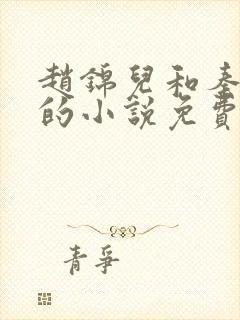 趙錦兒和秦
的小說免費
青爭